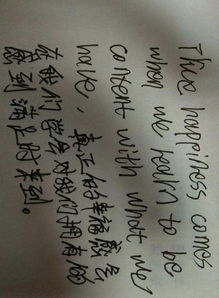 True happiness comes
when we learn to be
content with what we
have, 真正的幸福感会
在我们学会对我们拥有的
感到满足时来到。